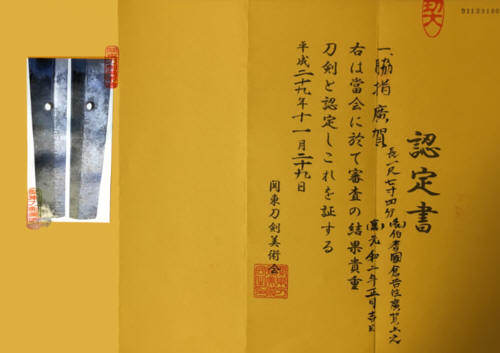 認定書
一、脇指 廣賀
長一尺七寸四分 (表)伯耆國倉吉住廣賀上之
(裏)元和二年正月吉日
右は當会に於て審査の結果貴重
刀剣と認定しこれを証する
平成二十九年十一月二十九日
関東刀剣美術会